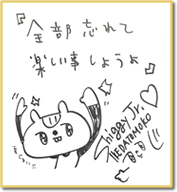 全部忘れて
楽しい事しようよ
Shiggy Jr.
IKEDATOMOKO